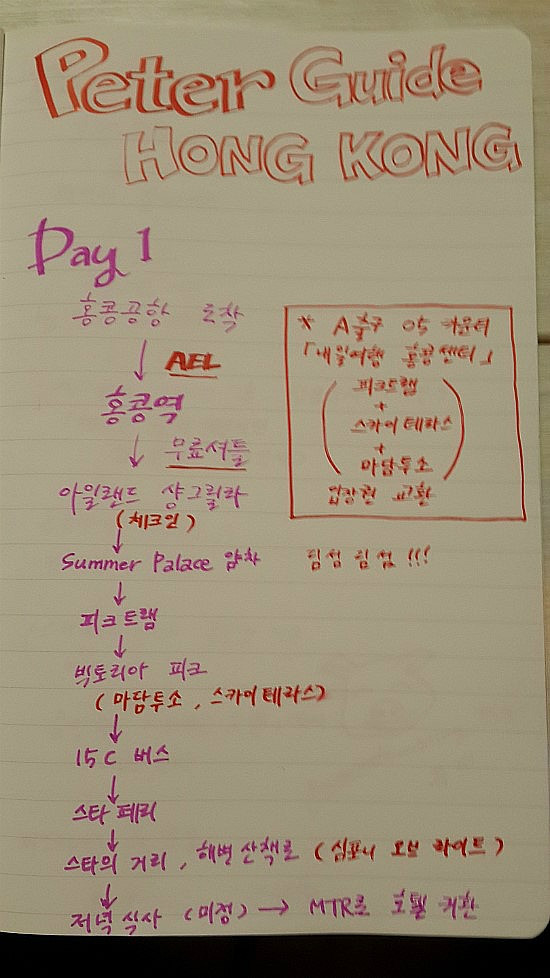 Peter Guide
HONG KONG
Day 1
홍콩공항 도착
AEL
홍콩역
무료셔틀
아일랜드 샹그릴라
(체크인)
* A출구 05 카운터
「내일여행 홍콩센터」
피크트램
+
스카이테라스
+
마담투소
입장권 교환
Summer Palace 얌차 딤섬 딤섬 !!!
피크트램
빅토리아 피크
(마담투소, 스카이테라스)
15C 버스
스타페리
스타의 거리, 해변산책로 (심포니 오브 라이트)
저녁식사 (미정) → MTR로 호텔 귀환